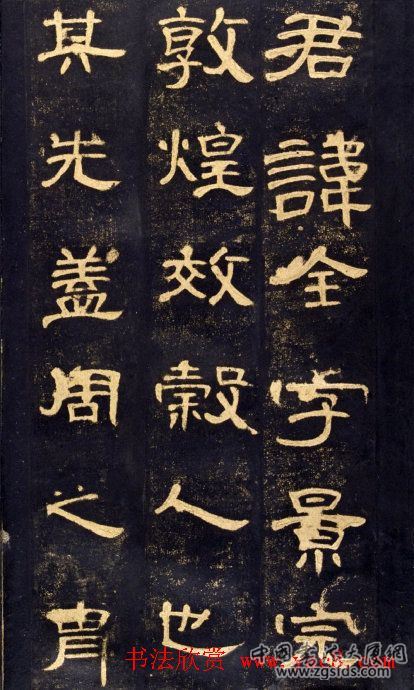 君諱全字景完
敦煌效穀人也
其先蓋周之胄
书法欣赏
www.zgsfds.com